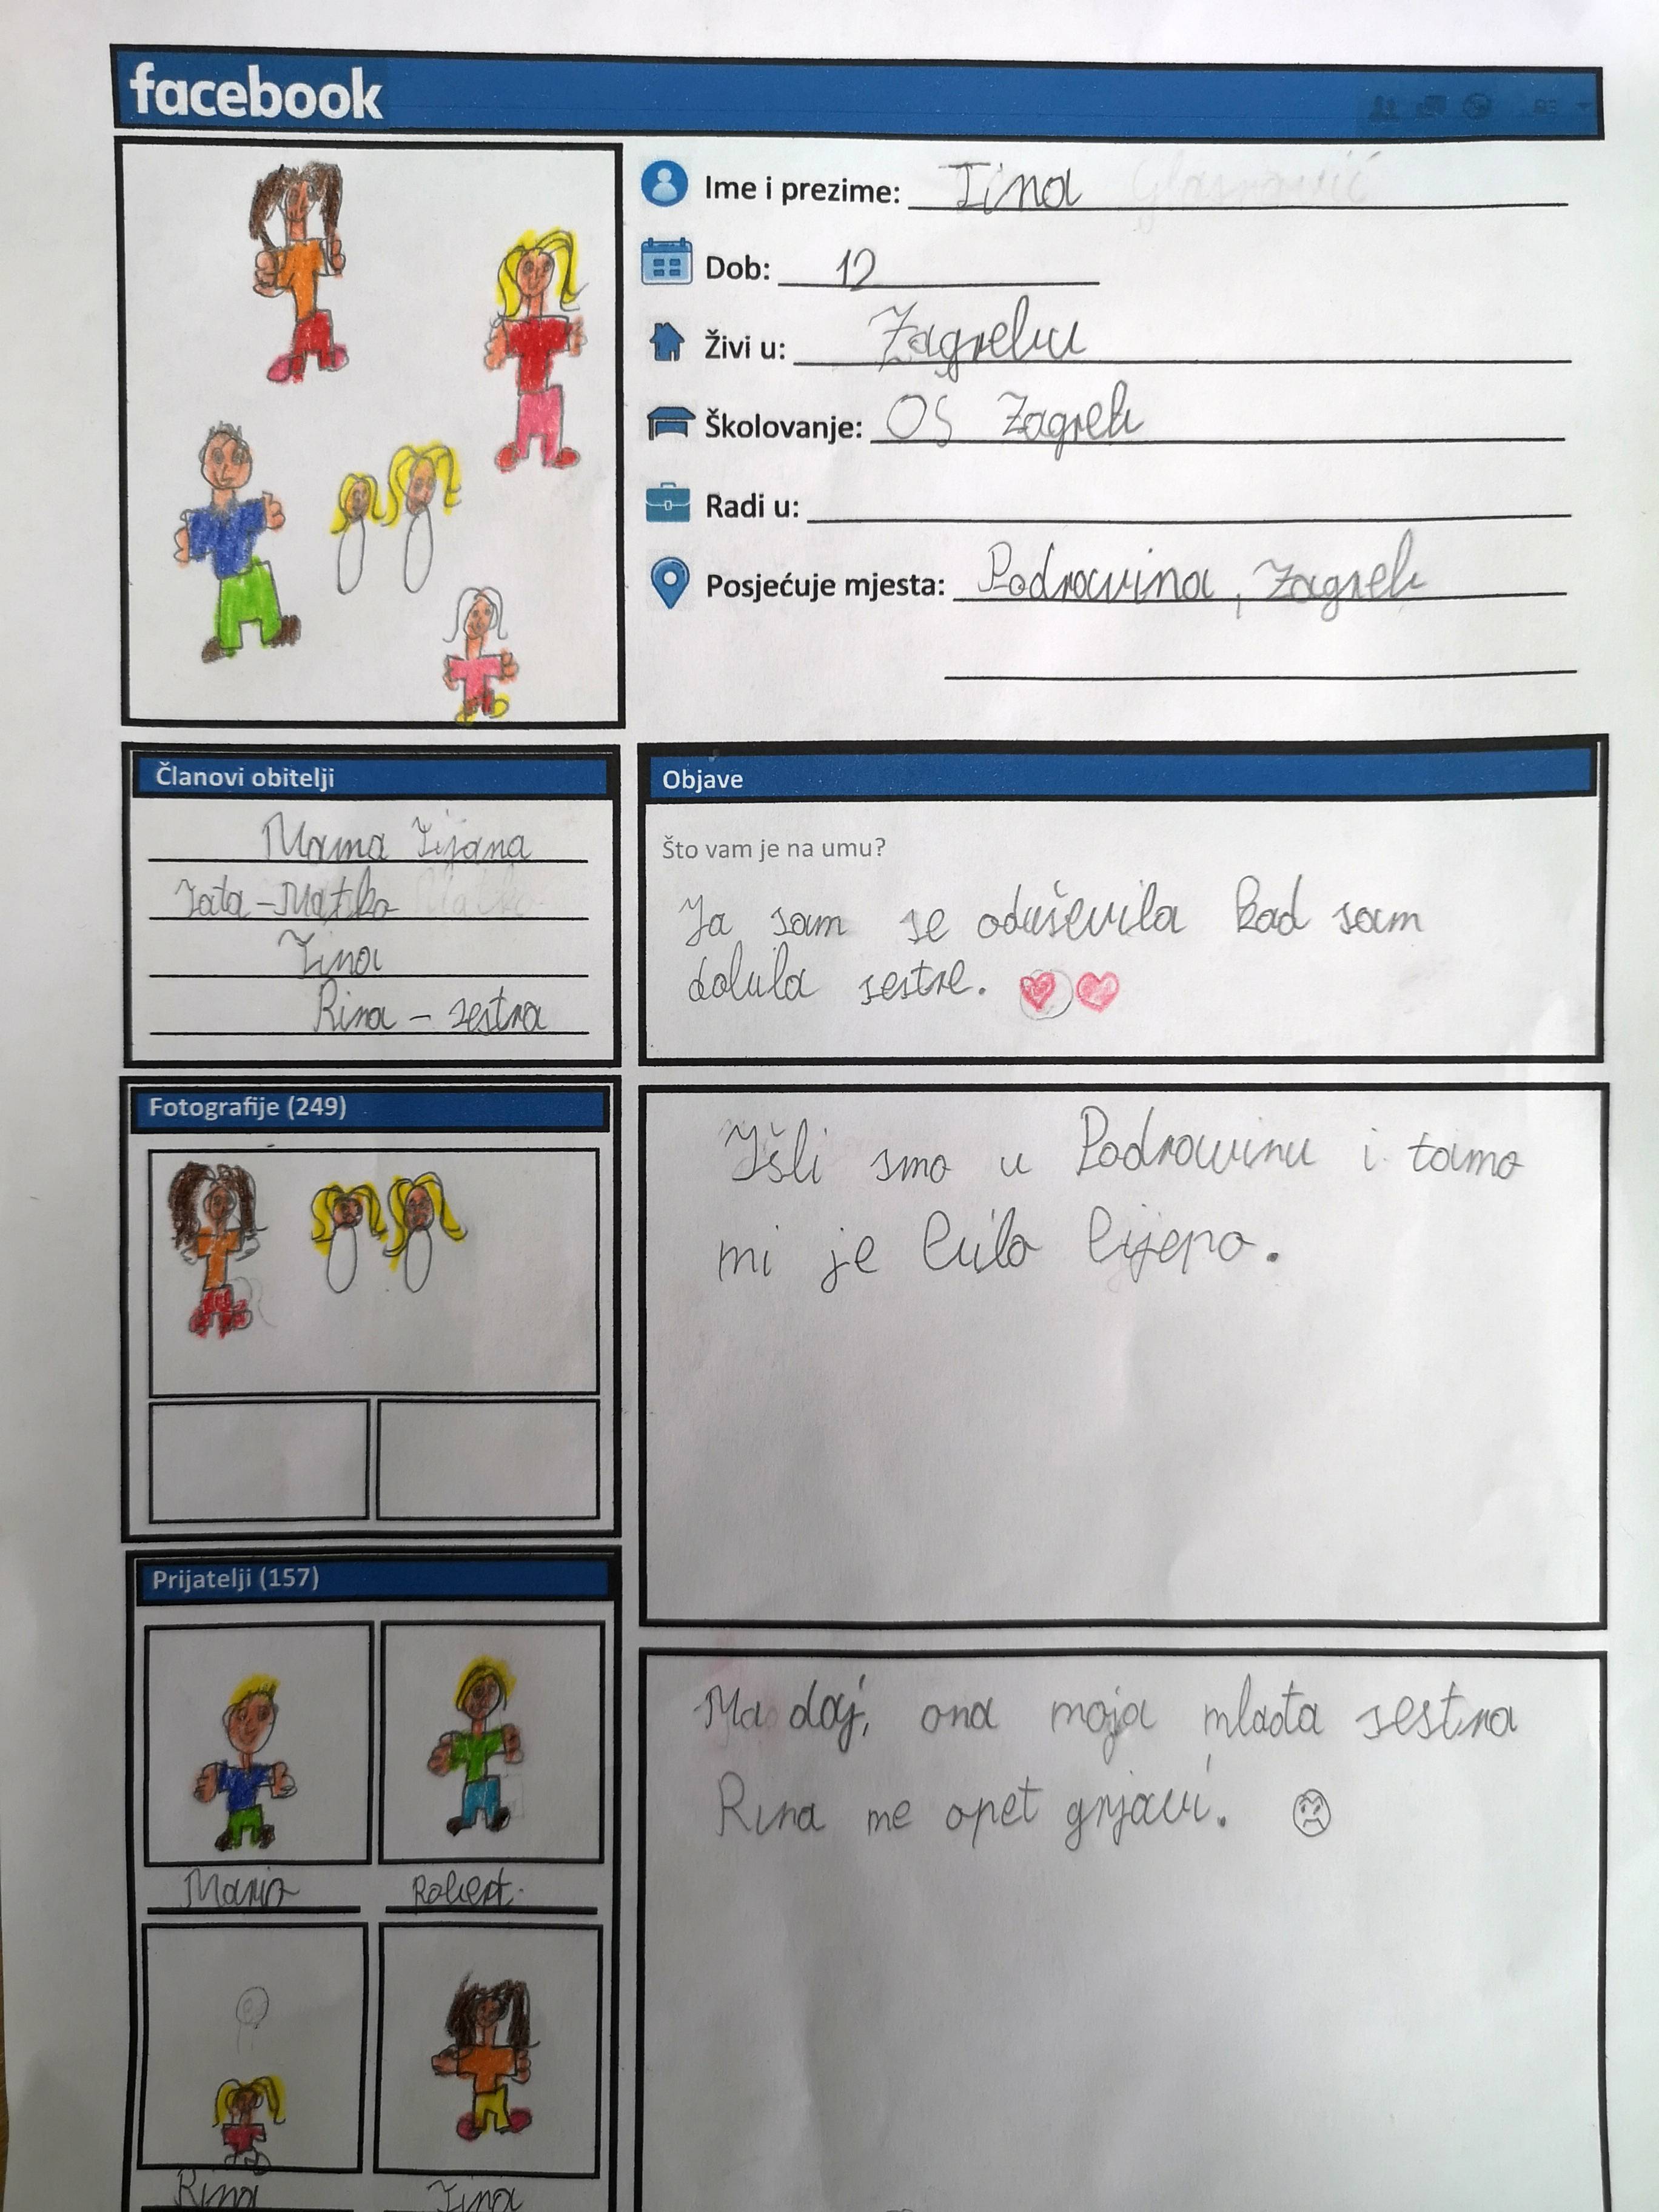 facebook
Ime i prezime: Tina
Dob: 12
Živi u: Zagrebu
Školovanje: OŠ Zagreb
Radi u:
Posjećuje mjesta: Podravina, Zagreb
Članovi obitelji
Mama Tijana
Tata - Matko
Tina
Rina - sestra
Objave
Što vam je na umu?
Ja sam se oduševila kad sam
dobila sestre.
Išli smo u Podravinu i tamo
mi je bilo lijepo.
Ma daj, ona moja mlađa sestra
Rina me opet gnjavi.
Fotografije (249)
Prijatelji (157)
Mario
Robert
Rina
Tina